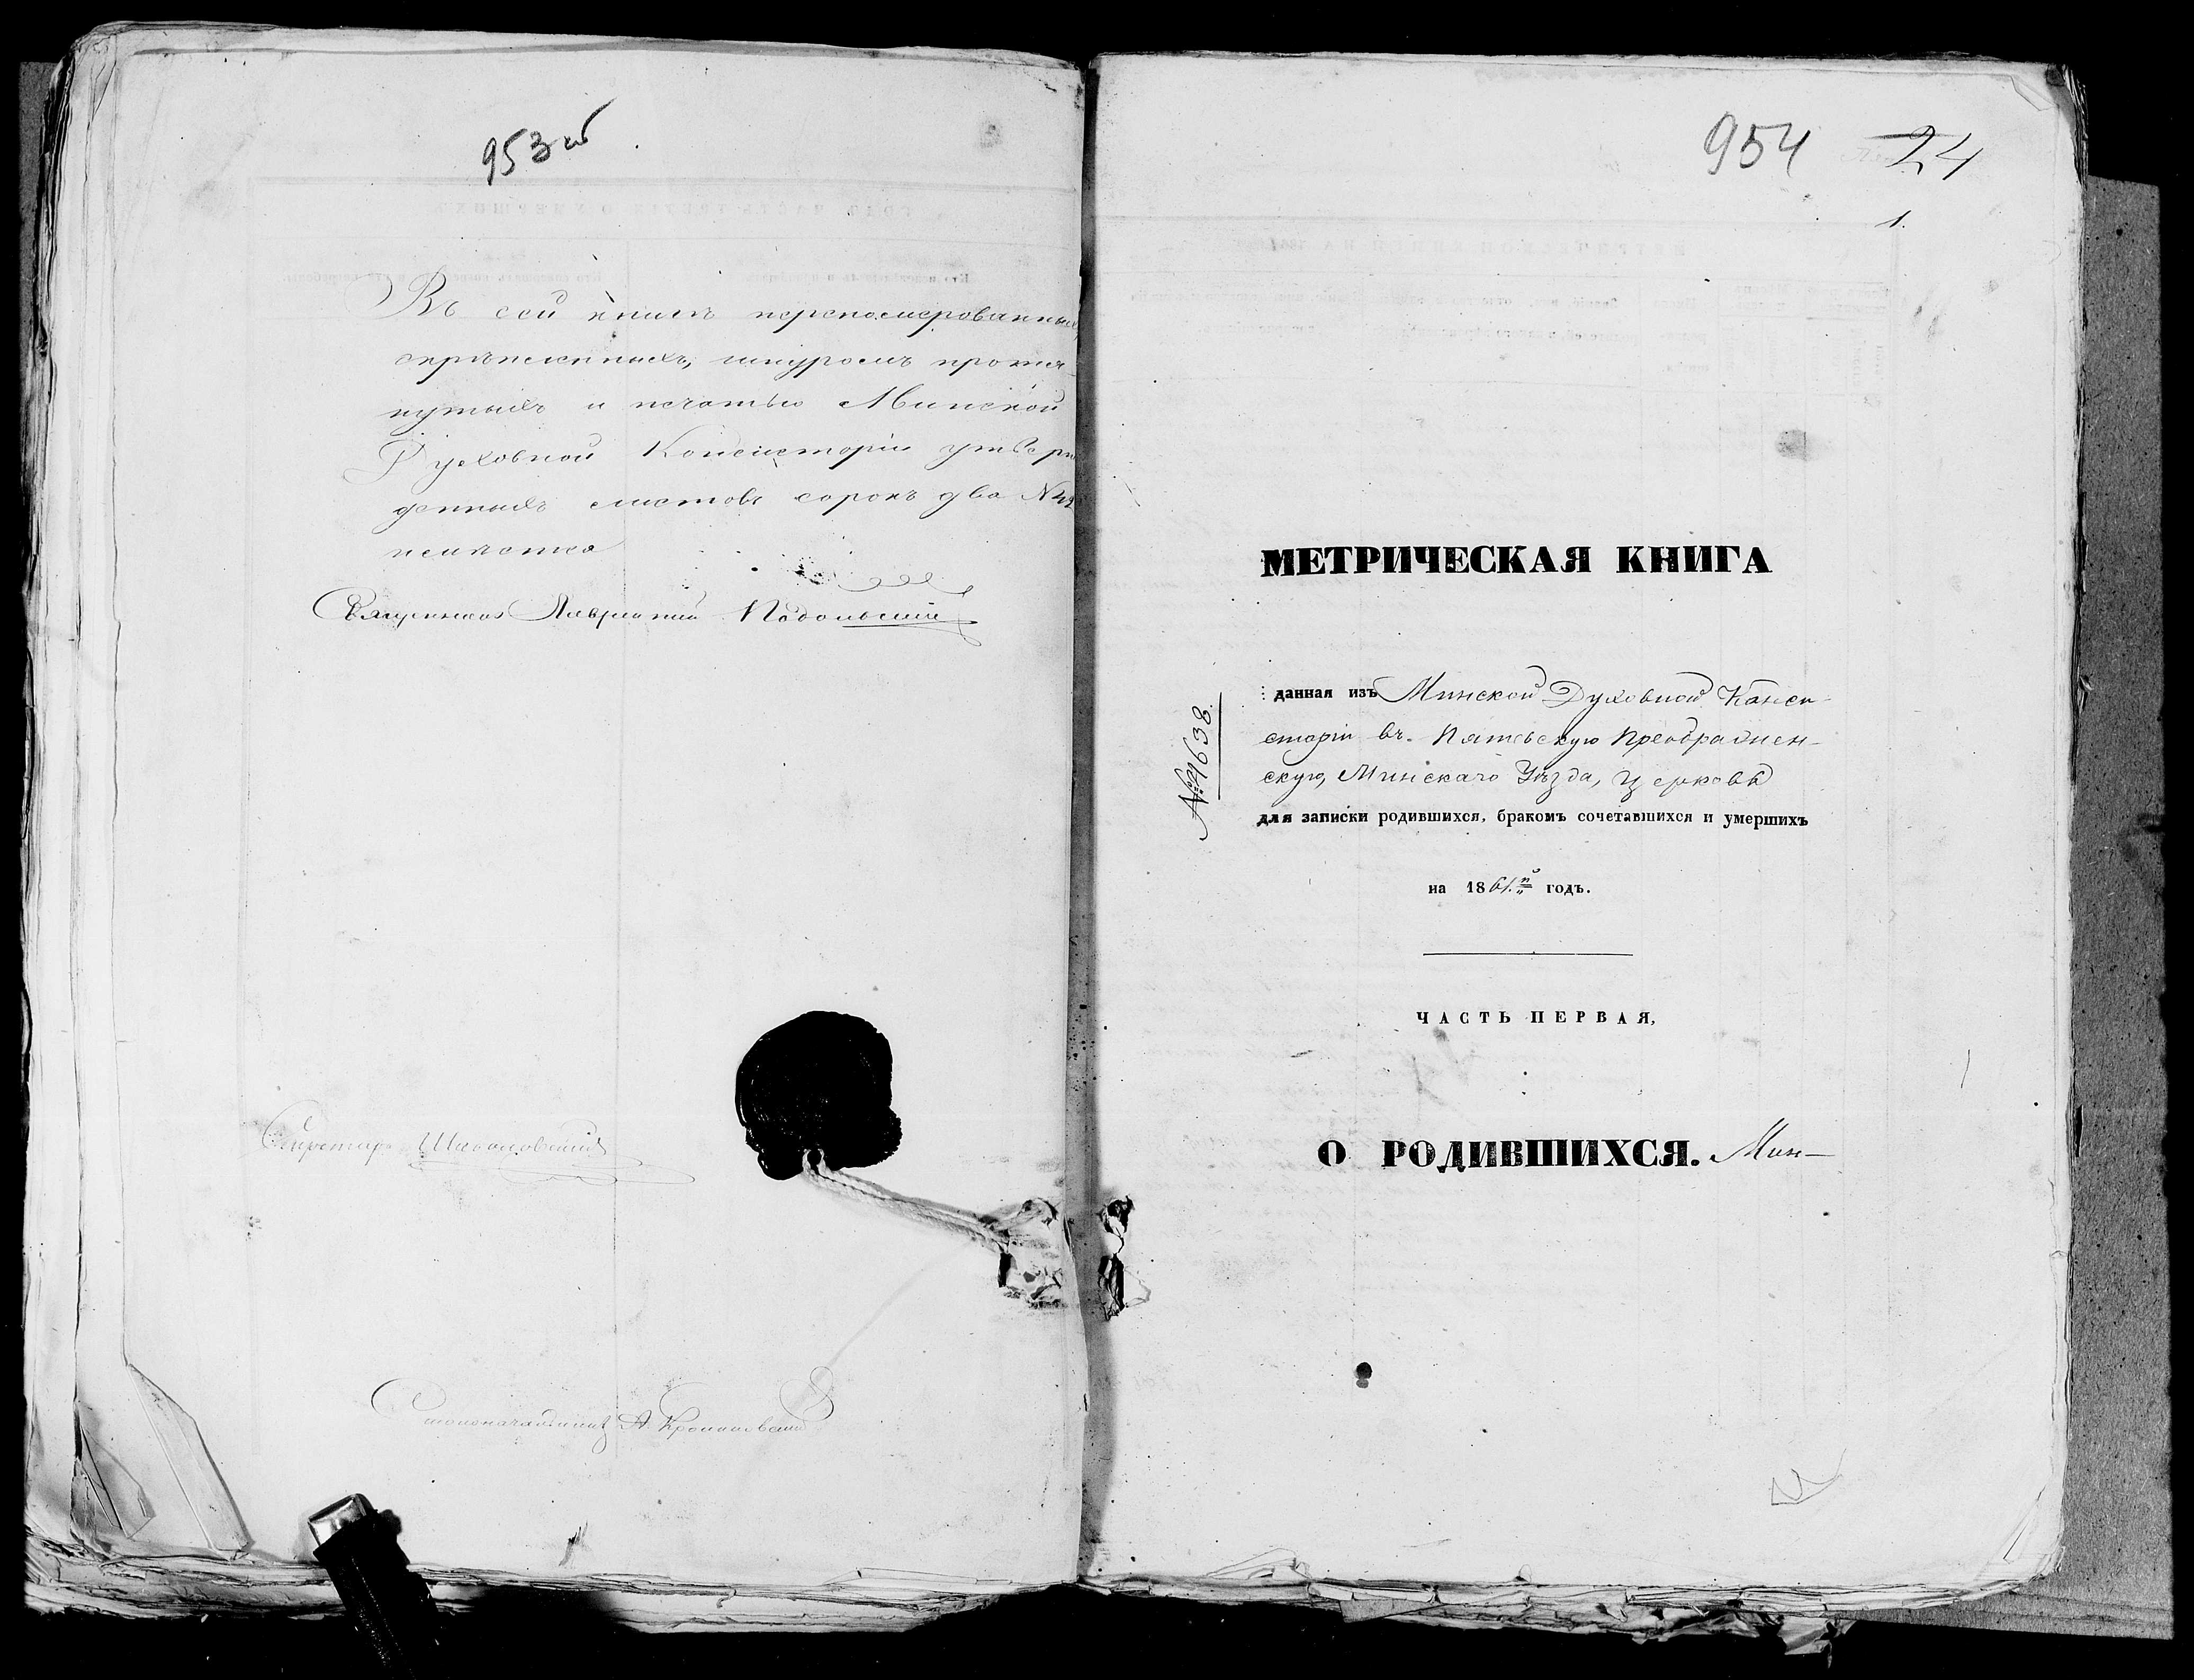 953 об
Въ сей книгѣ перенумерованныхъ,
скрѣпленныхъ, шнуромъ протя-
нутыхъ и печатью Минской
Духовной Консисторіи утверж
денныхъ листовъ сорокъ два №42
Священникъ Лаврентій Подольский
Секретарь
Столоначальникъ А.
954 24
1.
МЕТРИЧЕСКАЯ КНИГА
№ 4638.
данная изъ Минской Духовной Конси-
сторіи въ Пятевскую Преображен-
скую, Минскаго Уѣзда, церковь
для записки родившихся, бракомъ сочетавшихся и умершихъ
на 1861й годъ.
ЧАСТЬ ПЕРВАЯ,
О РОДИВШИХСЯ. Мин-